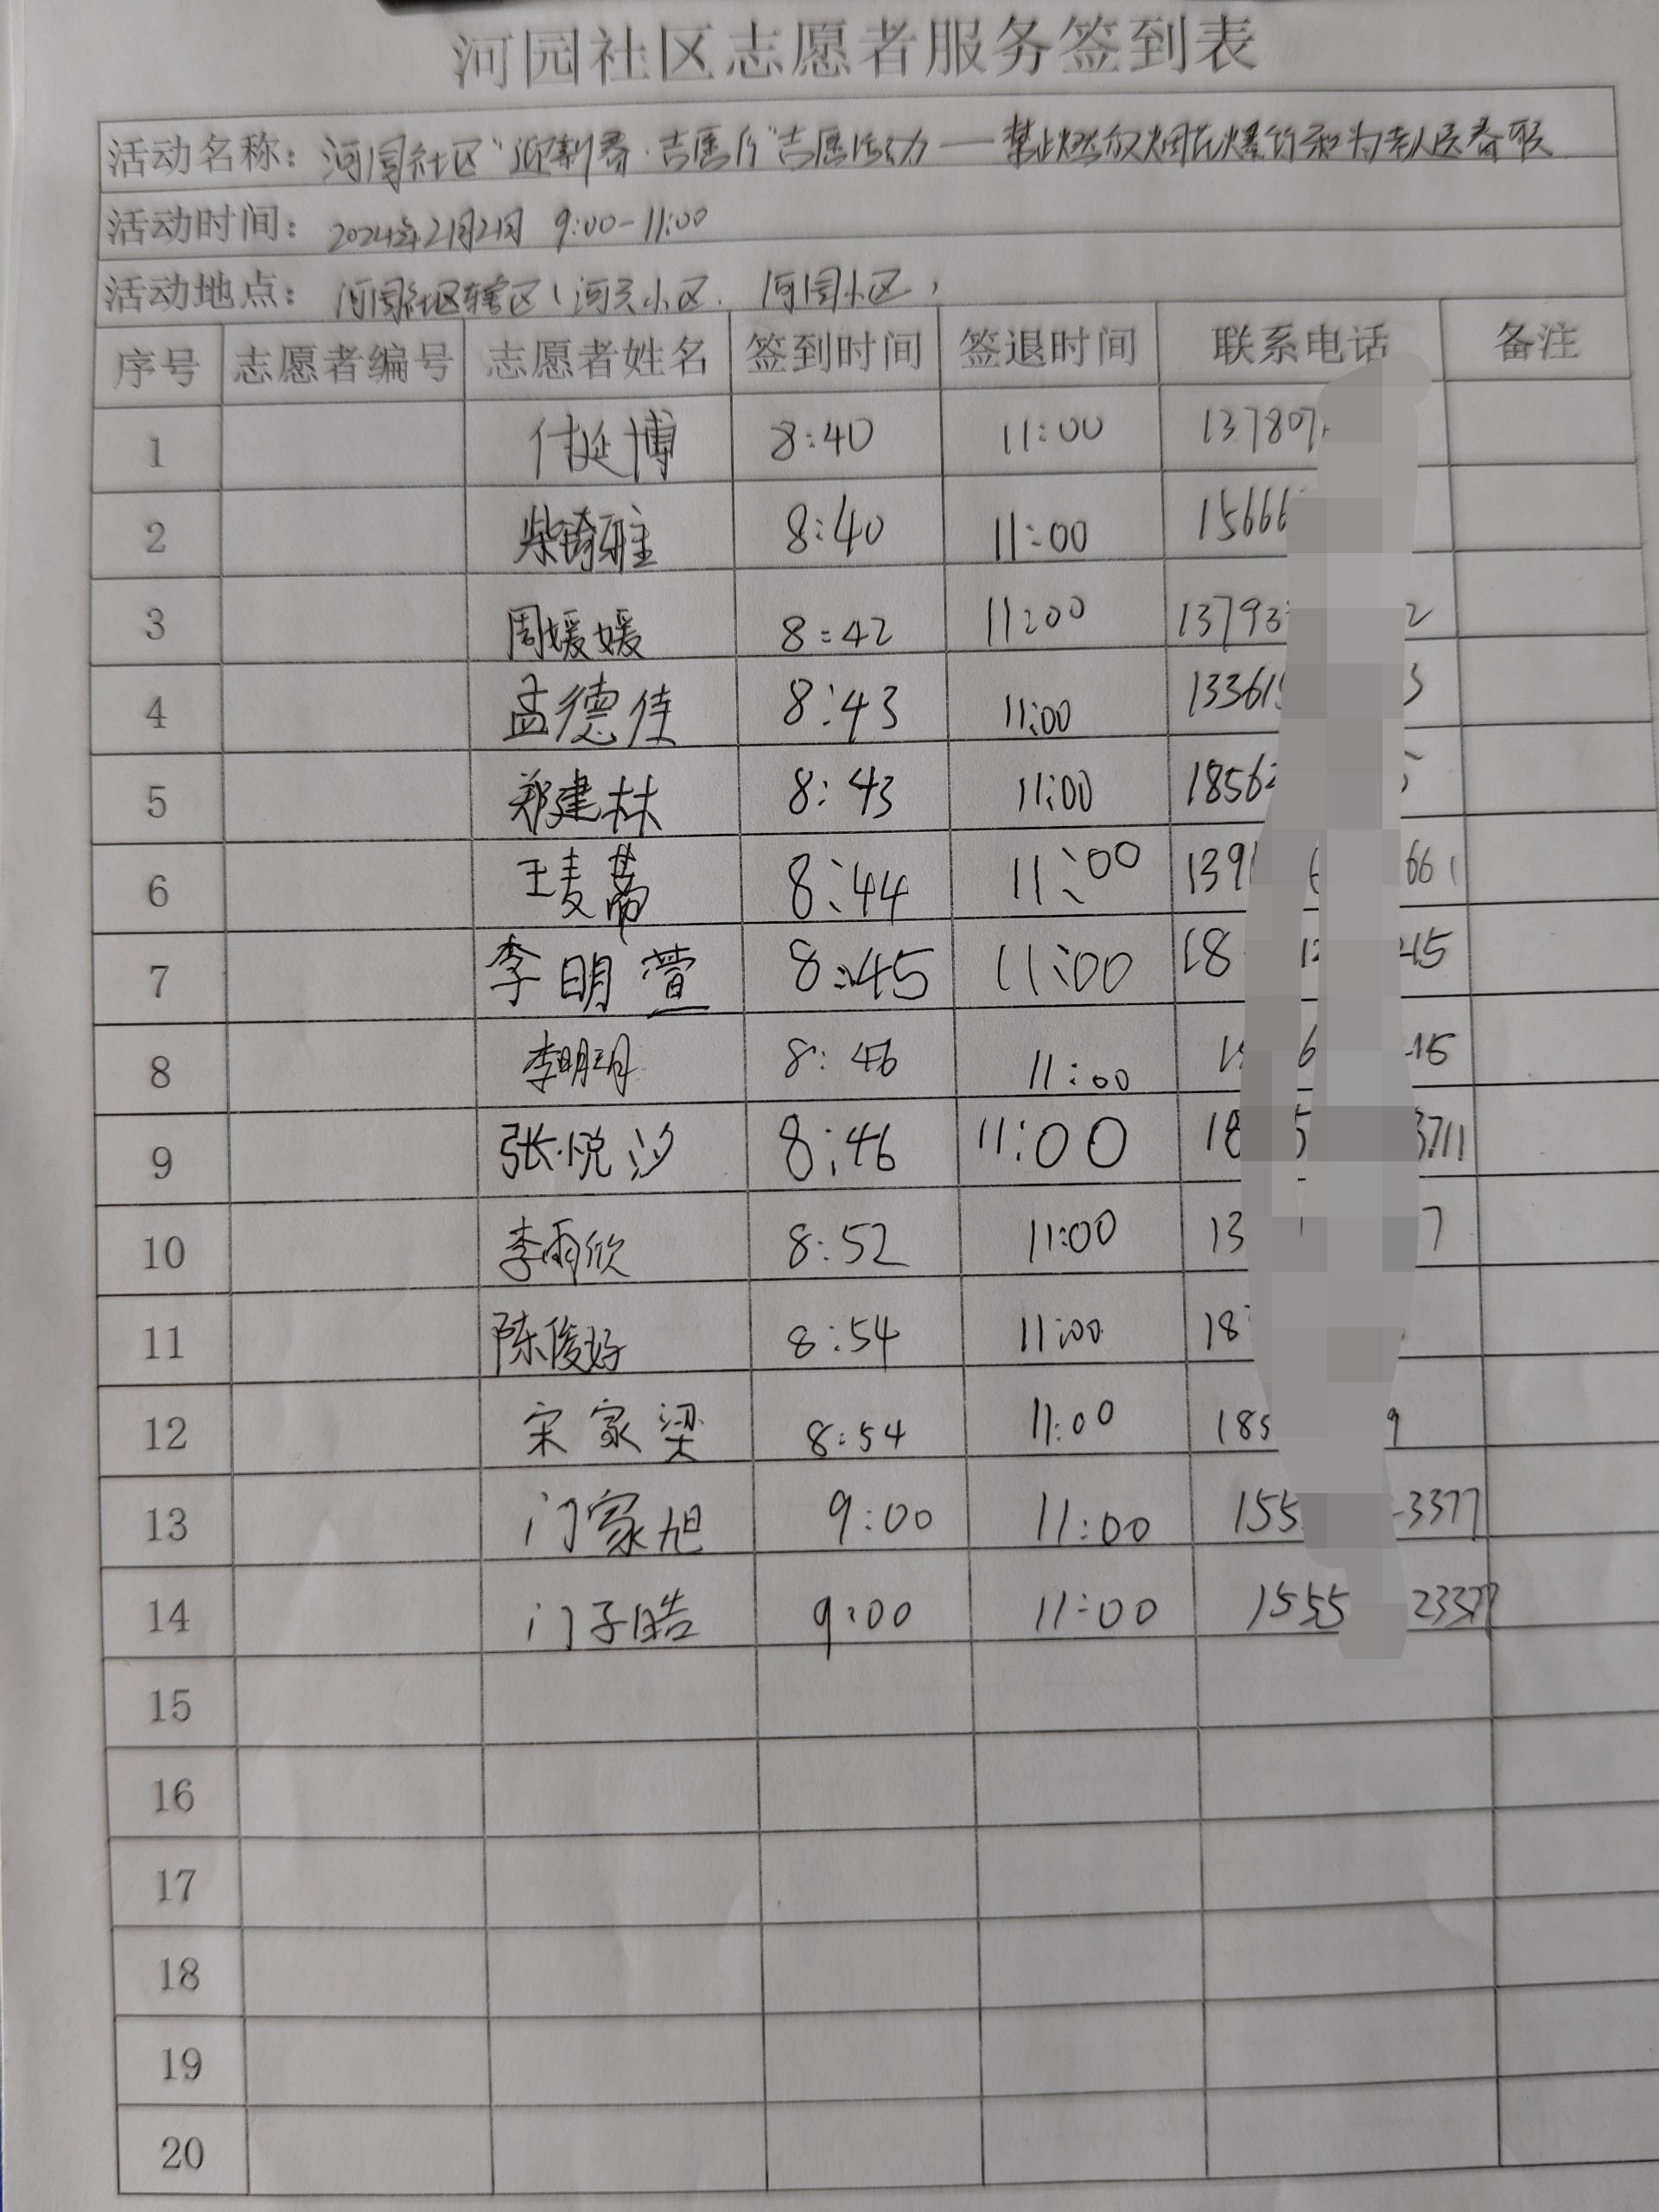 河园社区志愿者服务签到表
活动名称: 河园社区"迎新春·志愿行"志愿活动——禁止燃放烟花爆竹和为老人送春联
活动时间: 2024年2月2日 9:00-11:00
活动地点: 河园社区辖区(河 小区、河园小区)
序号 志愿者编号 志愿者姓名 签到时间 签退时间 联系电话 备注
1 付延博 8:40 11:00 137807
2 柴琦雅 8:40 11:00 15666
3 周媛媛 8:42 11:00 13793 2
4 孟德佳 8:43 11:00 13361 3
5 郑建林 8:43 11:00 1856
6 王麦蔼 8:44 11:00 139 661
7 李明萱 8:45 11:00 18 12 45
8 李明玥 8:46 11:00 6 15
9 张悦汐 8:46 11:00 18 5 3711
10 李雨欣 8:52 11:00 13 7
11 陈俊好 8:54 11:00 18
12 宋家梁 8:54 11:00 185 9
13 门家旭 9:00 11:00 155 3377
14 门子皓 9:00 11:00 1555 23377
15
16
17
18
19
20